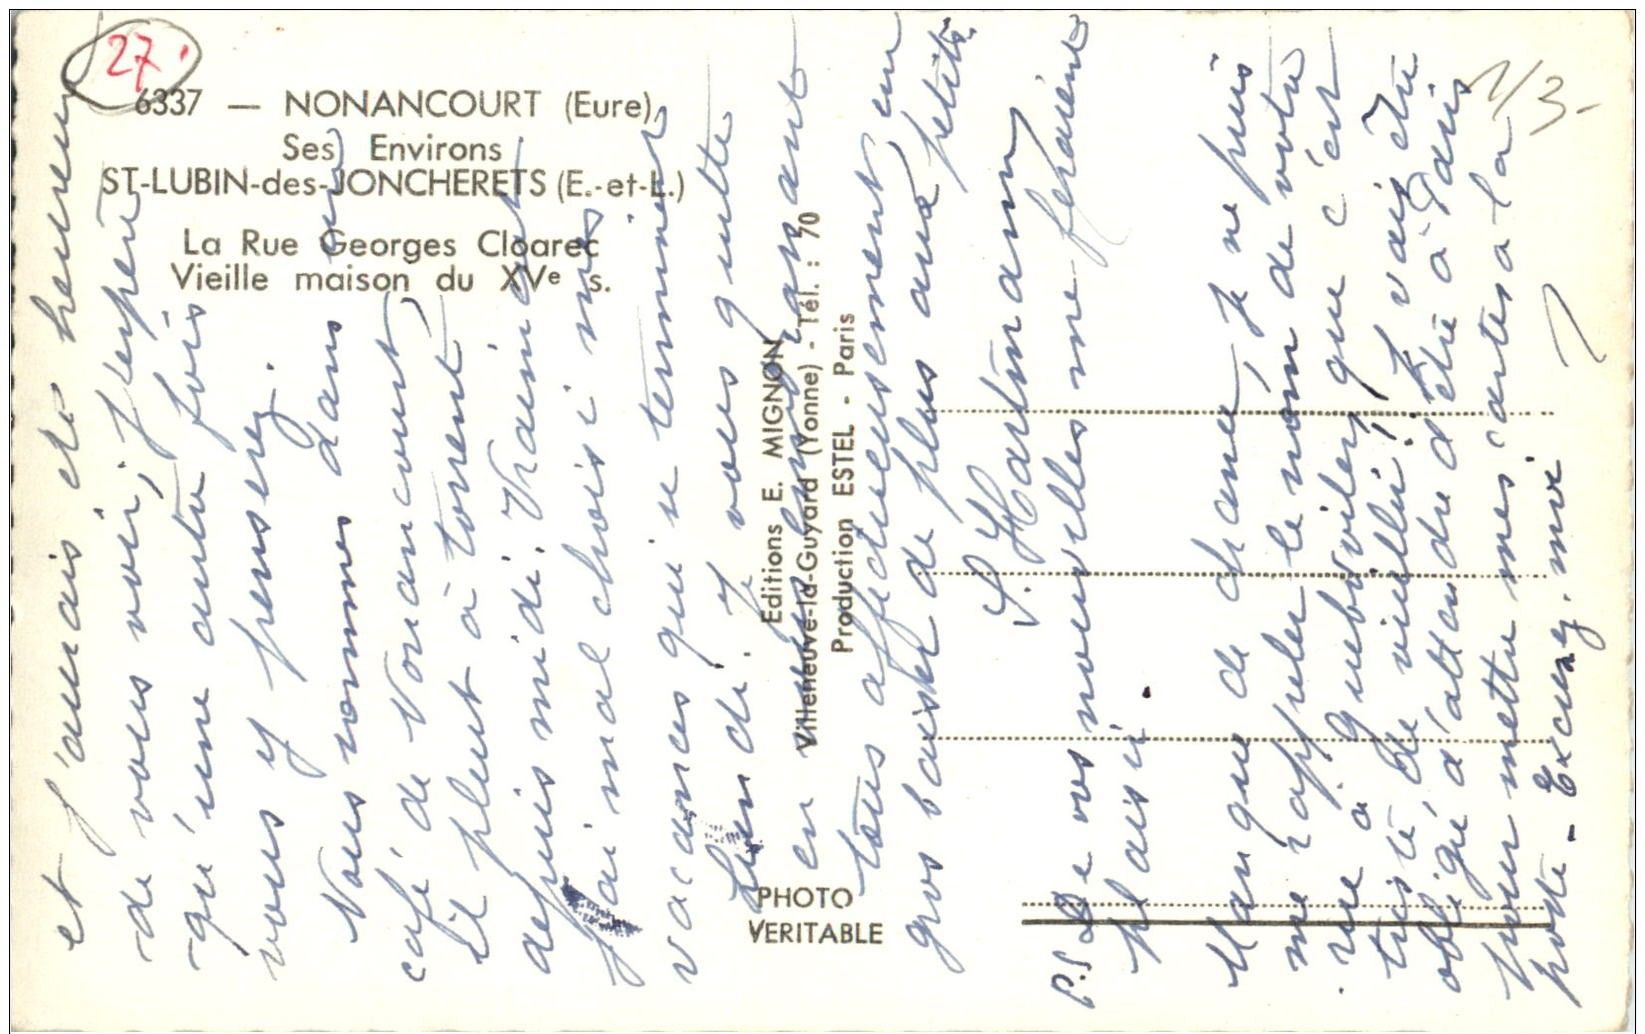 27.
6337 — NONANCOURT (Eure)
Ses Environs
ST-LUBIN-des-JONCHERETS (E.-et-L.)
La Rue Georges Cloarec
Vieille maison du XVe s.
Editions E. MIGNON
Villeneuve-la-Guyard (Yonne) - Tél. : 70
Production ESTEL - Paris
PHOTO
VERITABLE
1/3-
et j'aurais été heureux
de vous voir, j'espère
qu'une autre fois
vous y penserez.
Nous sommes dans un
café de Nonancourt,
il pleut à torrent
depuis midi. Vraiment
j'ai mal choisi mes
vacances qui se terminent
lundi. Je vous quitte
en vous embrassant
tous affectueusement
gros baisers de plus aux petits.
S. Hartmann
P.S. De vos nouvelles me feraient
plaisir.
Manque de chance, je ne puis
me rappeler le nom de votre
rue à Guebwiller, que c'est
triste de vieillir!! Je vais être
obligé d'attendre d'être à Paris
pour mettre mes cartes à la
poste - Excusez-moi